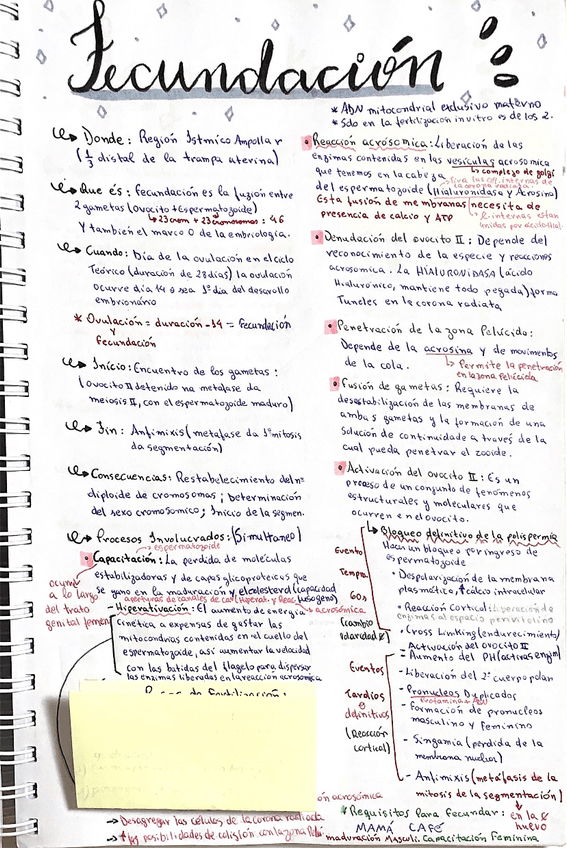 Fecundación
* ADN mitocondrial exclusivo materno
* Solo en la fertilización in vitro es de los 2.
Donde: Región Istmico Ampollar
(1/3 distal de la trampa uterina)
Que és: Fecundación es la fuzión entre
2 gametas (Ovocito + Espermatozoide)
23crom + 23cromosomas: 46
Y también el marco 0 de la embriología.
Cuando: Día de la ovulación en el ciclo
Teórico (duración de 28 días) la ovulación
ocurre dia 14 o sea 1º dia del desarollo
embrionário
* Ovulación = duración -14 = Fecundación
y
Fecundación
Início: Encuentro de los gametas:
(ovocito II detenido na metafase da
meiosis II, con el espermatozoide maduro)
Fin: Anfimixis (metafase da 1º mitosis
da segmentación)
Consecuencias: Restabelecimento del nº
diploide de cromosomas; Determinación
del sexo cromosomico; Inicio de la segmen.
Procesos Involucrados: (Simultaneo)
espermatozoide
Capacitación: La perdida de moléculas
estabilizadoras y de capas glicoproteicas que
se gano en la maduración y el colesterol (capacidad
aperturas de canales de ca (hiperat. y Reac. acrosómica
fusogeno)
ocurre
a lo largo
del trato
genital femen
- Hiperativación: El aumento de energia
cinética a expensas de gastar las
mitocondrias contenidas en el cuello del
espermatozoide, así aumentar la velocidad
con las batidas del flagelo para dispersar
las enzimas liberadas en la reacción acrosomica
ón acrosómica
→ Desagregar las células de la corona radiada
→ posibilidades de colisión con la zona
Reacción acrosomica: Liberación de las
enzimas contenidas en las vesículas acrosomica
complejo de golgi
que tenemos en la cabeza
del espermatozoide (Hialuronidasa y Acrosina)
Esta fusión de membranas necesita de
presencia de calcio y ATP
Denudación del ovocito II: Depende del
reconocimento de la especie y reacciones
acrosomica. La HIALURONIDASA (ácido
Hialurónico, mantiene todo pegado) forma
Tuneles en la corona radiata
Penetración de la zona Pelúcida:
Depende de la acrosina y de movimentos
de la cola.
Permite la penetración
en la zona Pelúcida
Fusión de gametas: Requiere la
desestabilización de las membranas de
ambas gametas y la formación de una
solución de continuidade a través de la
cual pueda penetrar el zooide.
Activación del ovocito II: Es un
proceso de un conjunto de fenómenos
estructurales y moleculares que
ocurren en el ovocito.
Evento
Tempra
Gos
(cambio
Bloqueo definitivo de la polispermia
Hacer un bloqueo por ingreso de
espermatozoide
• Despolarización de la membrana
plasmática, ↑ cálcio intracelular
• Reacción Cortical: liberación de
enzimas al espacio perivitelino
• Cross Linking (endurecimiento)
Activación del ovocito II
= Aumento del PH (activas enzim)
Eventos
Tardíos
e
definitivos
(Reacción
cortical)
- Liberación del 2º cuerpo polar
- Pronucleos Duplicados
- Formación de pronucleos
masculino y femenino
- Singamia (perdida de la
membrana nuclear)
- Anfimixis (metáfasis de la
mitosis de la segmentación)
en la
huevo
* Requisitos Para Fecundar:
MAMÁ CAFÉ
maduración Masculi. Capacitación Femenina